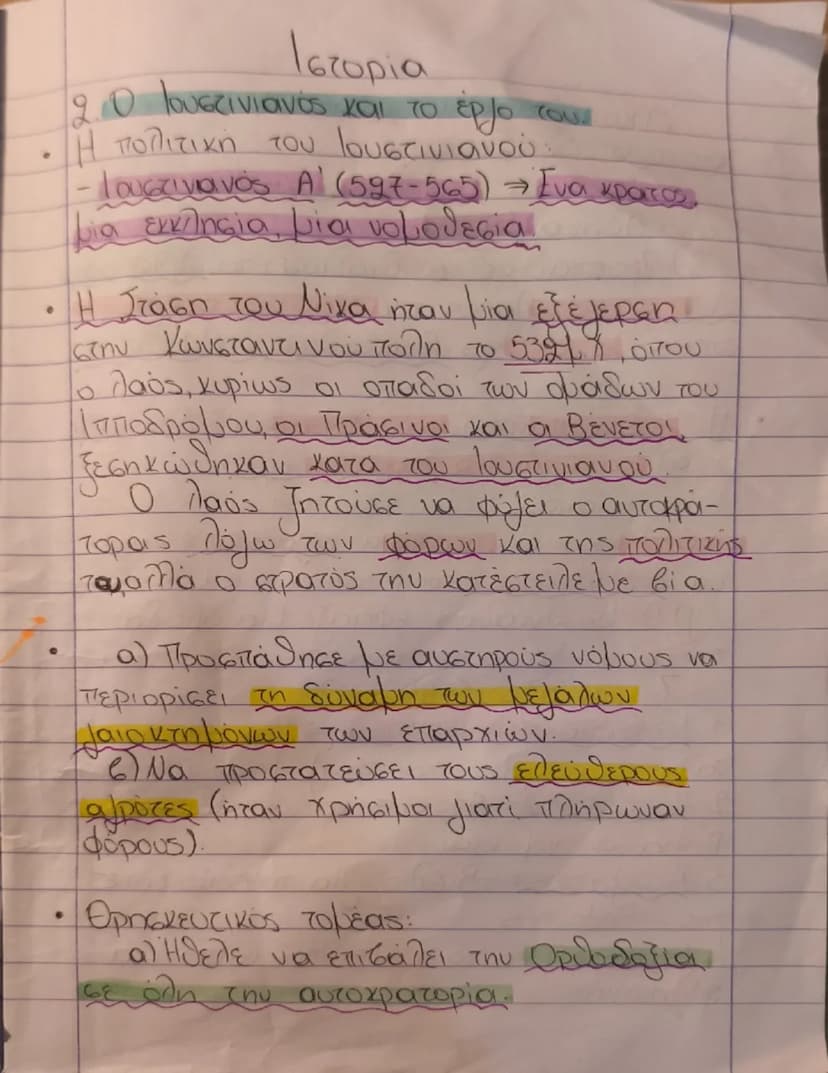 Ιστορία
2. Ο Ιουστινιανός και το έργο του.
• Η πολιτική του Ιουστινιανού:
- Ιουστινιανός Α' (527-565) → Ένα κράτος,
μία εκκλησία, μία νομοθεσία.
• Η Στάση του Νίκα ήταν μία εξέγερση
στην Κωνσταντινούπολη το 532 μ.Χ, όπου
ο λαός, κυρίως οι οπαδοί των ομάδων του
Ιπποδρόμου, οι Πράσινοι και οι Βένετοι,
ξεσηκώθηκαν κατά του Ιουστινιανού.
Ο λαός ζητούσε να φύγει ο αυτοκρά-
τορας λόγω των φόρων και της πολιτικής
του, αλλά ο στρατός την κατέστειλε με βία.
• α) Προσπάθησε με αυστηρούς νόμους να
περιορίσει τη δύναμη των μεγάλων
γαιοκτημόνων των επαρχιών.
β) Να προστατεύσει τους ελεύθερους
αγρότες (ήταν χρήσιμοι γιατί πλήρωναν
φόρους).
• Θρησκευτικός τομέας:
α) Ήθελε να επιβάλει την Ορθοδοξία
σε όλη την αυτοκρατορία.